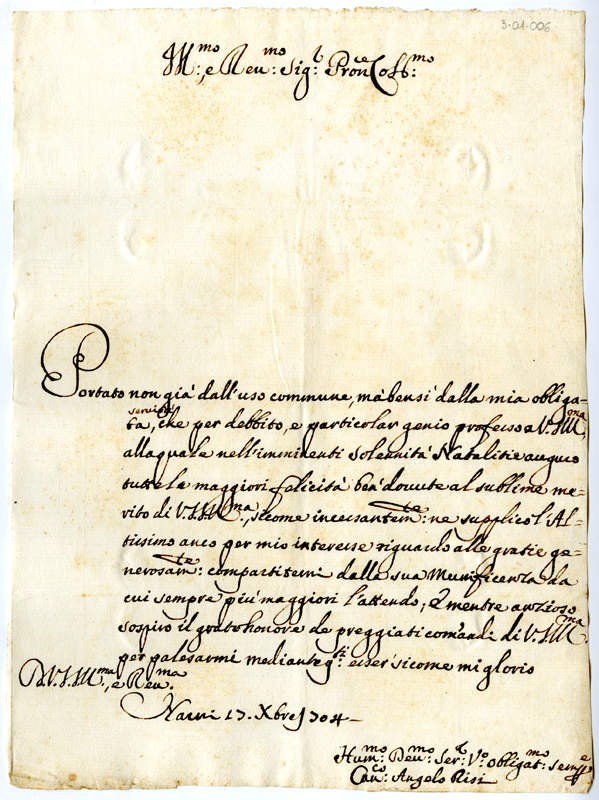 3-01-006
Ill:mo, e Reu:mo Sig:r Pron:ce Coll:mo
Portato non già dall'uso commune, mà bensi dalla mia obliga-
servitù
ta, che per debbito, e particolar genio professo a V.S.Ill:ma
alla quale nell'imminenti solennità Natalitie auguro
tutte le maggiori felicità ben dovute al sublime me-
rito di V.S.Ill:ma, sicome incessantem:te ne supplico l'Al-
tissimo anco per mio interesse riguardo alle gratie ge-
nerosam:te compartitemi dalla sua Munificenza da
cui sempre più maggiori l'attendo; E mentre anzioso
sospiro il grato honore de preggiati comandi di V.S.Ill:ma
per palesarmi mediante q:sti esser sicome mi glorio
D.V.S.Ill:ma, e Reu:ma
Narni 17. Xbre 1704
Hum:mo Deu:mo Ser:r V:o obligat:mo semp:e
Can:co Angelo Risi